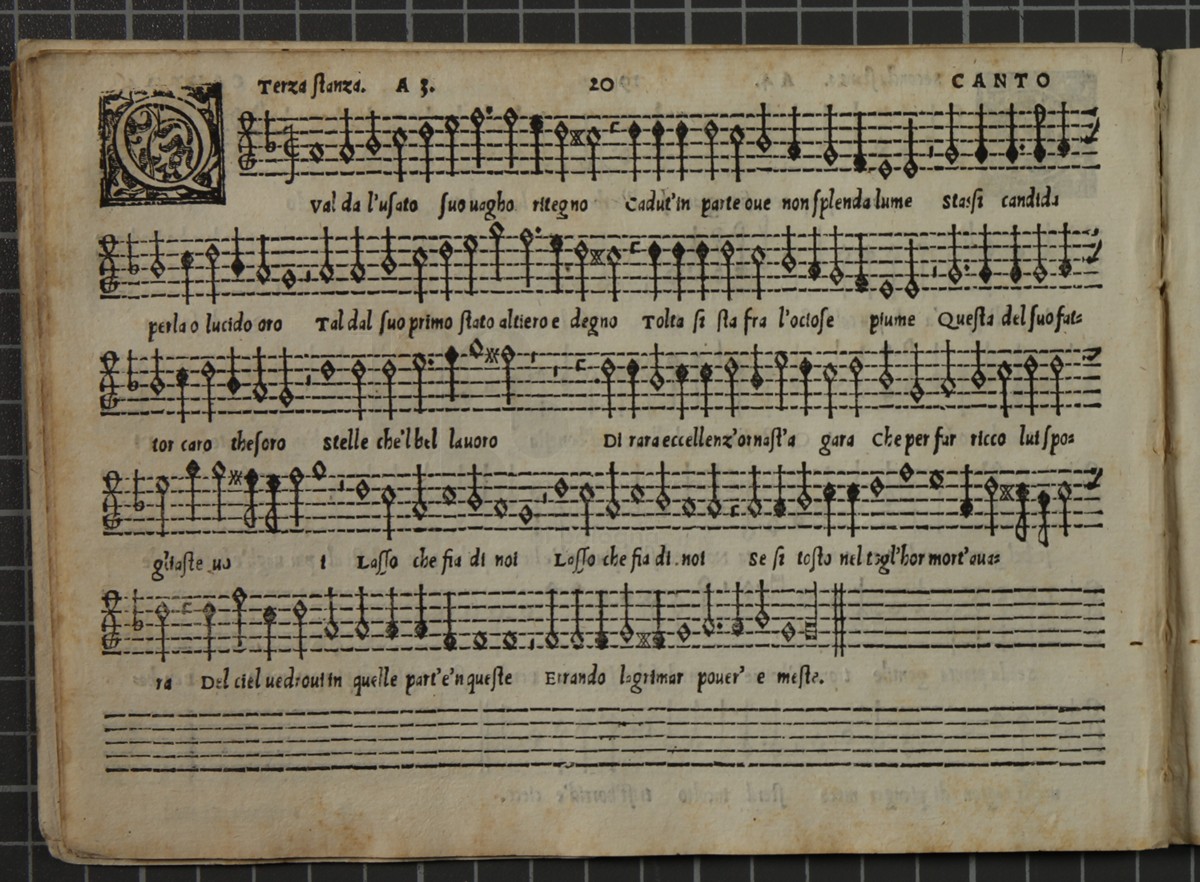 Terza stanza. A 3. 20 CANTO
QVal da l'usato suo uagho ritegno Cadut'in parte oue non splenda lume Stassi candida
perla o lucido oro Tal dal suo primo stato altiero e degno Tolta si sta fra l'ociose piume Questa del suo fat-
tor caro thesoro Stelle che'l bel lauoro Di rara eccellenz'ornast'a gara Che per far ricco lui spo-
gliaste uo i Lasso che fia di noi Lasso che fia di noi Se si tosto nel togl'hor mort'aua-
ra Del ciel uedroui in quelle part'e'n queste Errando lagrimar pouer' e meste.